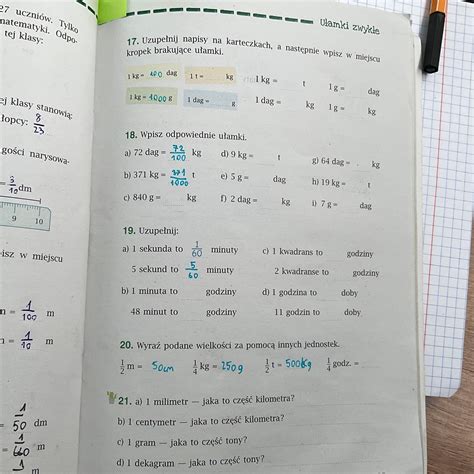 27 uczniów. Tylko
matematyki. Odpo-
tej klasy:
ej klasy stanowią:
łopcy: 8/23
gości narysowa-
= 3/10 dm
9 10
isz w miejscu
= 1/100 m
= 1/10 m
= 1/50 dm
m
Ułamki zwykłe
17. Uzupełnij napisy na karteczkach, a następnie wpisz w miejscu
kropek brakujące ułamki.
1 kg = 100 dag 1 t = kg 1 kg = t 1 g = dag
1 kg = 1000 g 1 dag = g 1 dag = kg 1 g = kg
18. Wpisz odpowiednie ułamki.
a) 72 dag = 72/100 kg d) 9 kg = t g) 64 dag = kg
b) 371 kg = 371/1000 t e) 5 g = dag h) 19 kg = t
c) 840 g = kg f) 2 dag = kg i) 7 g = dag
19. Uzupełnij:
a) 1 sekunda to 1/60 minuty c) 1 kwadrans to godziny
5 sekund to 5/60 minuty 2 kwadranse to godziny
b) 1 minuta to godziny d) 1 godzina to doby
48 minut to godziny 11 godzin to doby
20. Wyraź podane wielkości za pomocą innych jednostek.
1/2 m = 50cm 1/4 kg = 250g 1/2 t = 500kg 1/4 godz. =
21. a) 1 milimetr — jaka to część kilometra?
b) 1 centymetr — jaka to część kilometra?
c) 1 gram — jaka to część tony?
d) 1 dekagram — jaka to część tony?